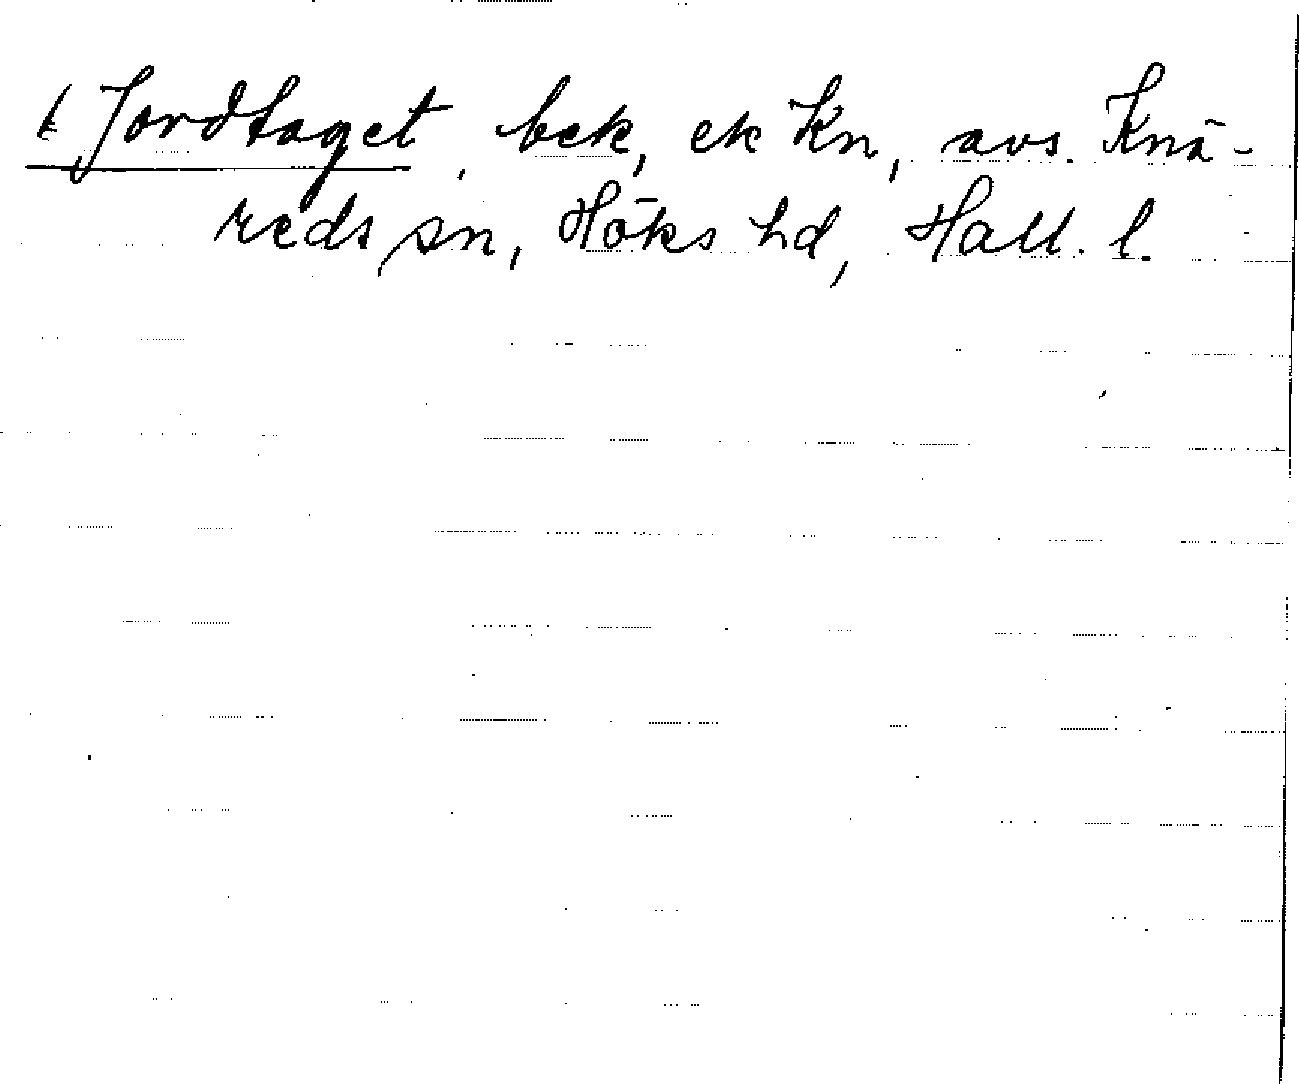 t Jordtaget, bek, ek Kn, avs. Knä-
reds sn, Höks hd, Hall. l.